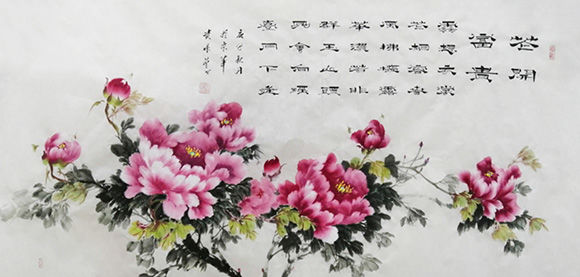 花開
富貴
雲想衣裳
花想容春
風拂檻露
華濃若非
群玉山頭
見會向瑤
臺月下逢
秋月
於京華